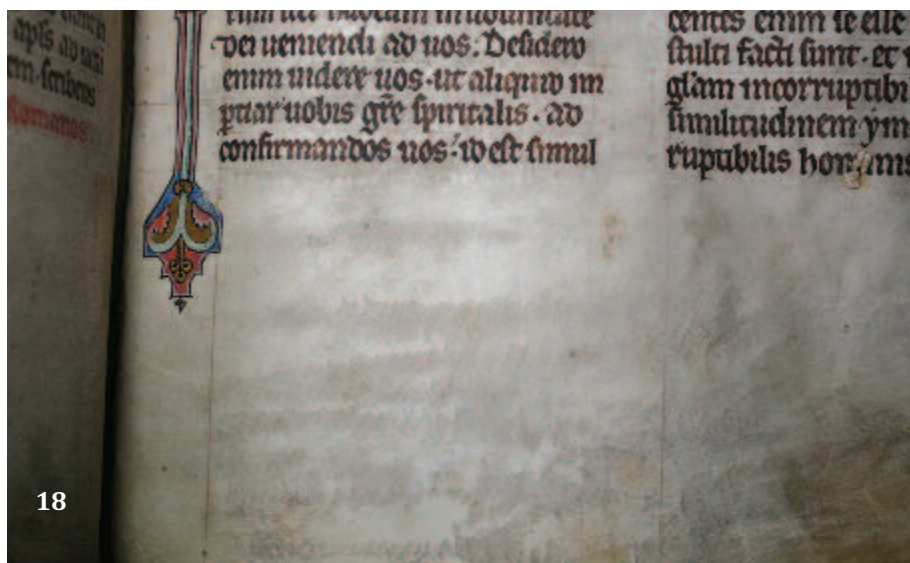 apłs ad uisi
em·scribens
Romanos·
dei ueniendi ad uos. Desidero
enim uidere uos·ut aliquid im
ptiar uobis gr̄e spiritalis· ad
confirmandos uos·id est simul
centes enim se esse
stulti facti sunt·et
gl̄am incorruptibi
similitudinem ym
ruptibilis hominis
18